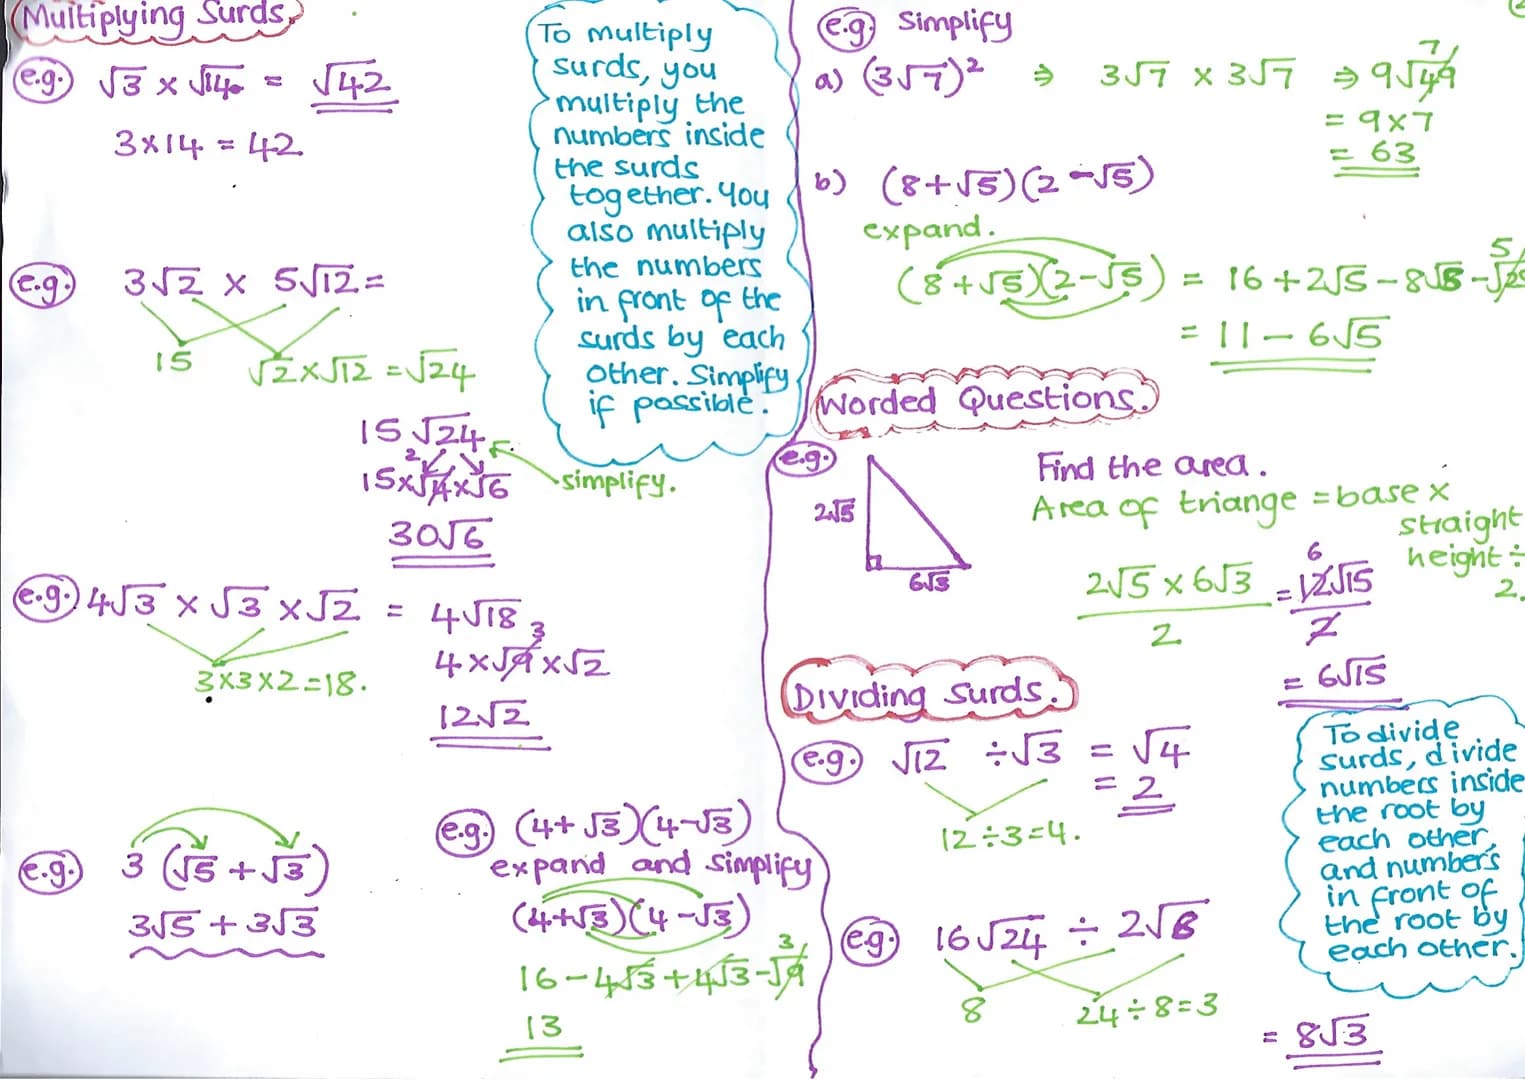 Multiplying Surds
e.g. √3 × √14 = √42
3×14 = 42
e.g. 3√2 × 5√12 =
15 √2×√12 = √24
15√24
2
15×√4×√6 simplify.
30√6
e.g. 4√3 × √3 × √2 = 4√18
3×3×2=18. 4×√9×√2
3
12√2
e.g. 3(√5 + √3)
3√5 + 3√3
e.g. (4+√3)(4-√3)
expand and simplify
(4+√3)(4-√3)
3
16-4√3+4√3-√9
13
To multiply
surds, you
multiply the
numbers inside
the surds
together. You
also multiply
the numbers
in front of the
surds by each
other. Simplify
if possible.
e.g. Simplify
7
a) (3√7)² ⇒ 3√7 × 3√7 ⇒ 9√49
= 9×7
= 63
b) (8+√5)(2-√5)
expand.
5
(8+√5)(2-√5) = 16+2√5-8√5-√25
= 11-6√5
Worded Questions.
e.g. Find the area.
2√5
6√3
Area of triange = base ×
straight
height ÷
2.
6
2√5 × 6√3 = 12√15
2 2
= 6√15
Dividing Surds.
e.g. √12 ÷ √3 = √4
= 2
12÷3=4.
e.g. 16√24 ÷ 2√8
8 24÷8=3
= 8√3
To divide
surds, divide
numbers inside
the root by
each other,
and numbers
in front of
the root by
each other.